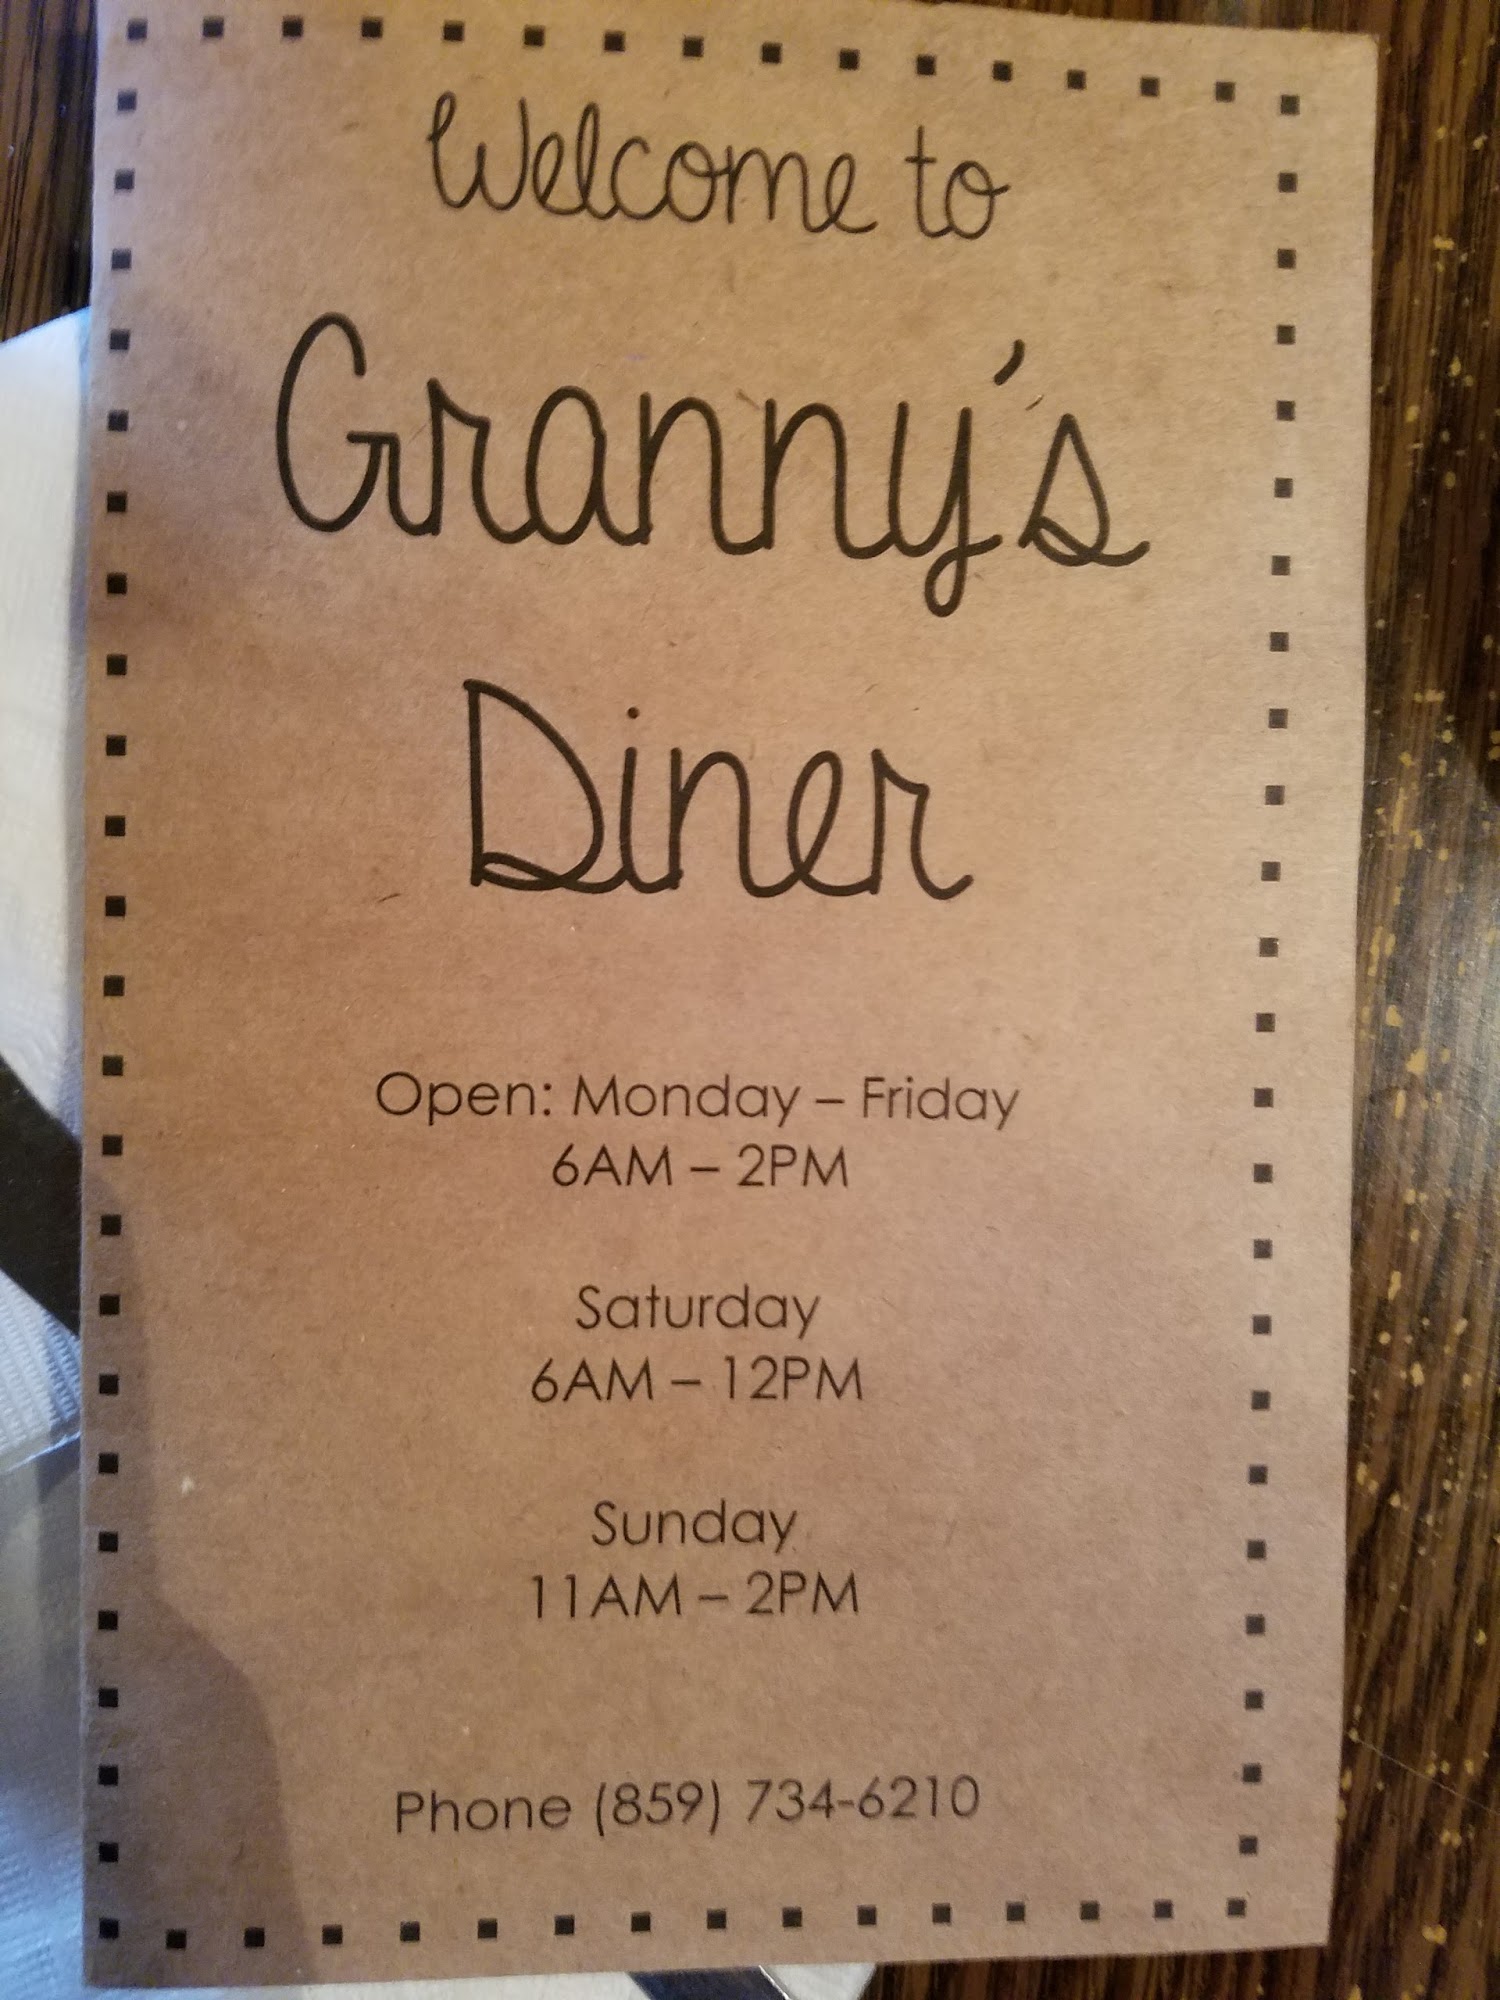 Welcome to
Granny's
Diner
Open: Monday – Friday
6AM – 2PM
Saturday
6AM – 12PM
Sunday
11AM – 2PM
Phone (859) 734-6210